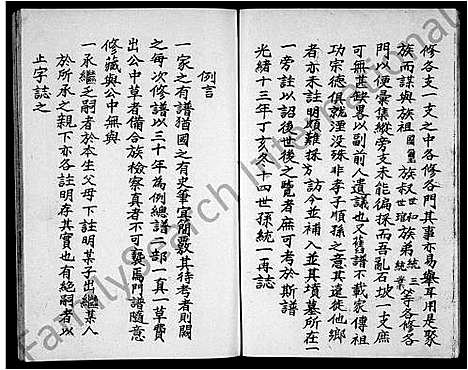 修各支一支之中各修各門其事亦易舉耳用是聚
族而謀與族祖國璽族叔世和世維族弟統三統業等各修各
門以便彙集縱旁支未能徧採而吾亂石坡一支庶
可無甚缺畧以副前人遺議也又舊譜不載家傳祖
功宗德俱就湮沒殊非孝子順孫之意其遠徙他鄉
者亦未註明頗難採訪今並補入並其墳墓所在一
一旁註以詔後世後之覽者庶可考於斯譜
光緒十三年丁亥冬十四世孫統一再誌
例言
一家之有譜猶國之有史筆宜簡嚴其待考者則闕
之每次修譜以三十年為例總譜二部一真一草費
出公中草者備合族檢察真者不可輕焉門譜隨意
修藏與公中無與
一承繼之嗣者於本生父母下註明某子出繼某人
於所承之親下亦各註明存其實也有絕嗣者以
止字誌之
FamilySearch International